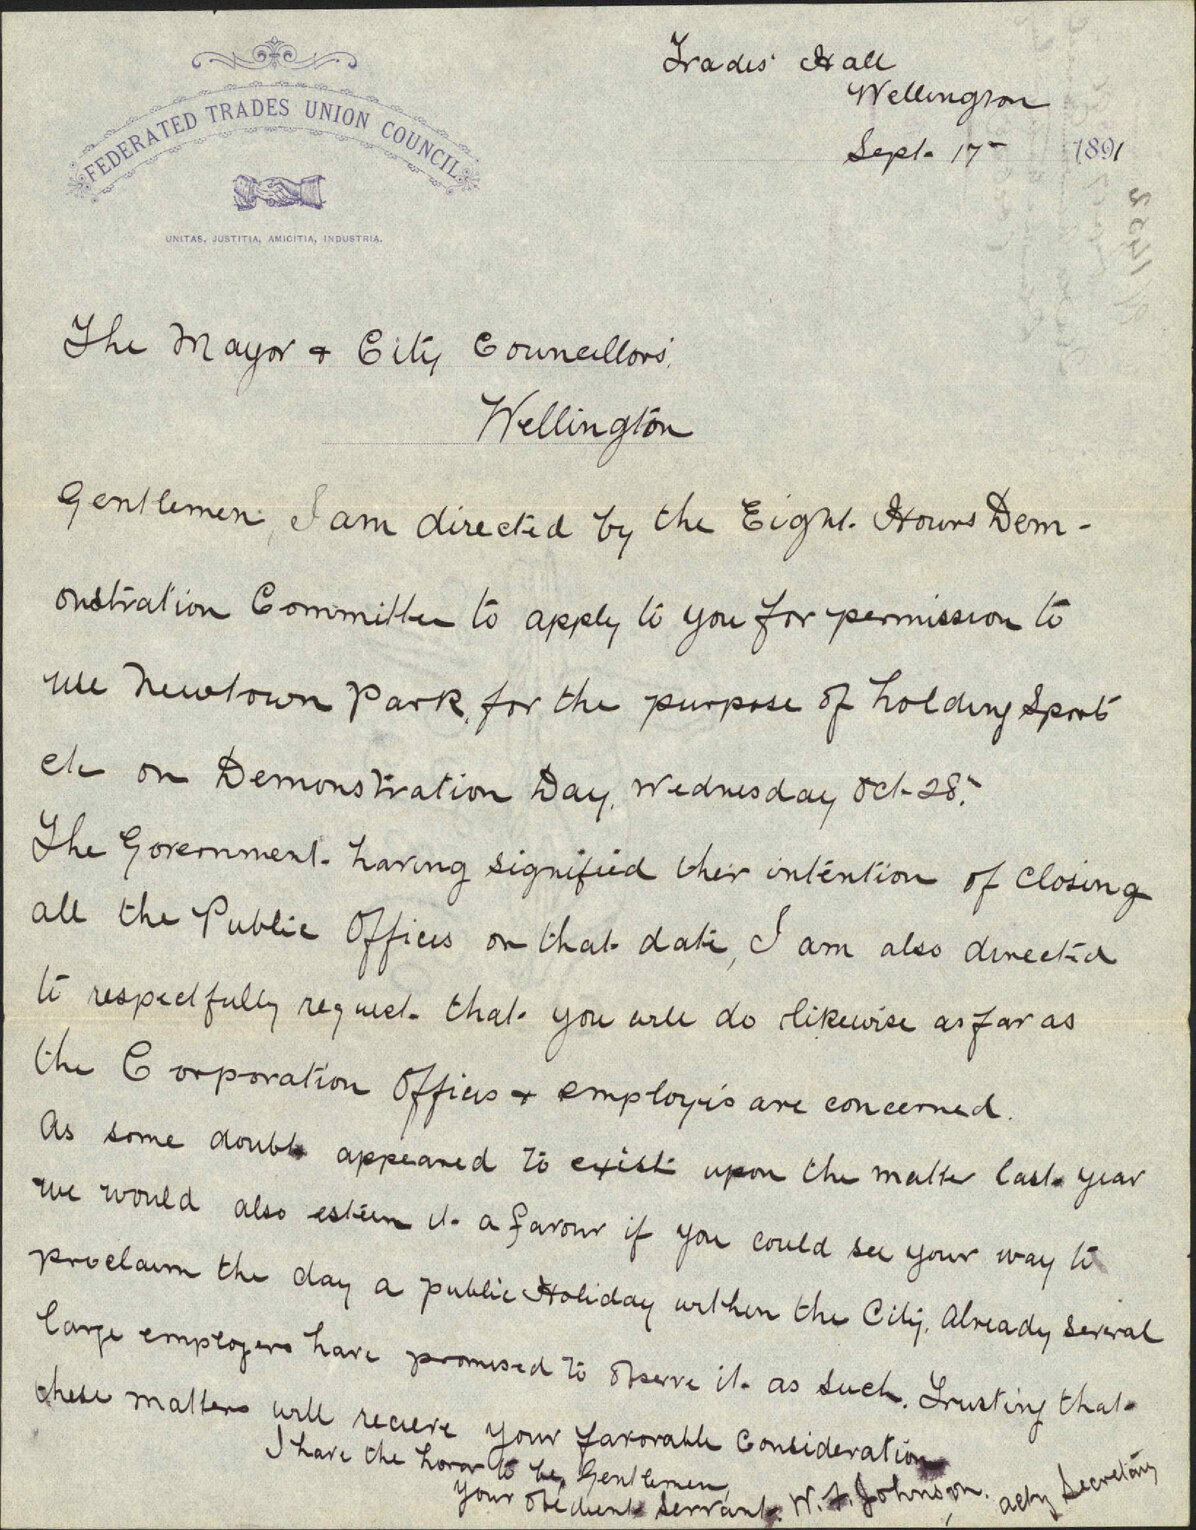 Trades' Hall
Wellington
Sept. 17 1891
FEDERATED TRADES UNION COUNCIL
UNITAS, JUSTITIA, AMICITIA, INDUSTRIA.
The Mayor & City Councillors
Wellington
Gentlemen, I am directed by the Eight Hours Dem-
onstration Committee to apply to you for permission to
use Newtown Park, for the purpose of holding Sports
etc on Demonstration Day, Wednesday Oct 28.
The Government having signified their intention of closing
all the Public Offices on that date, I am also directed
to respectfully request that you will do likewise as far as
the Corporation Offices & employés are concerned.
As some doubt appeared to exist upon the matter last year
we would also esteem it a favour if you could see your way to
proclaim the day a public Holiday within the City. Already several
large employers have promised to observe it as such. Trusting that
these matters will recieve your favorable Consideration
I have the honor to be, Gentlemen,
Your obedient Servant, W. J. Johnson, actg Secretary